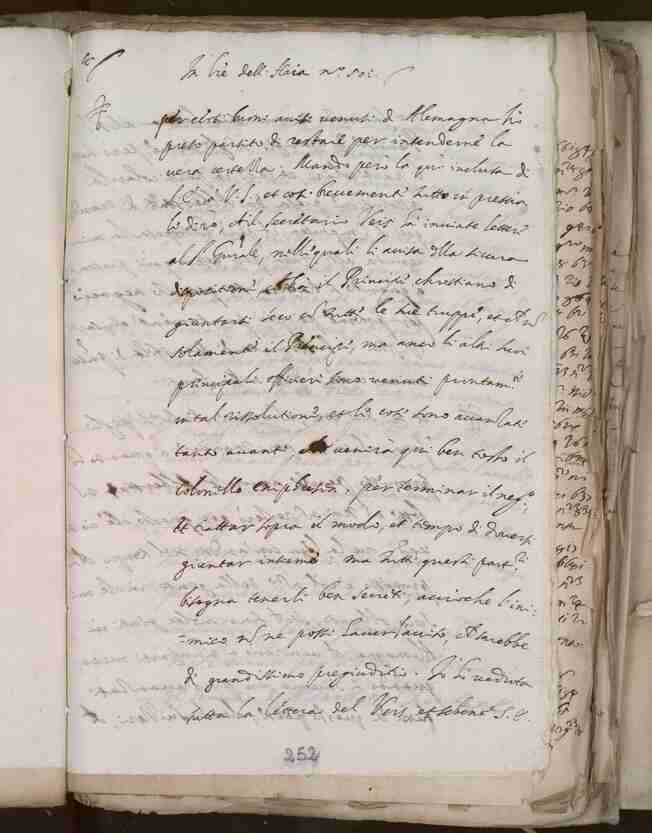 In Lre dell' Haia n.° 501
per certi buoni avisi venuti di Alemagna hò
preso partito di restare per intenderne la
vera certezza, Mando però la qui inclusa di
V. S. et così brevemente tutto in pressia
li dirò, ch'il secretario Veis hà inviate lettere
al S. Gnale, nelle quali li avisa della sicura
dispositione, ch'hà il Principe Christiano di
giuntarsi seco con tutte le sue truppe, et non
solamente il Principe, ma anco li altri suoi
principali officieri sono venuti puntam.te
in tal rissolutione, et le cose sono avanzati
tanto avanti, che venirà qui ben tosto il
colonello per terminar il neg.°
et trattar sopra il modo, et tempo di doversi
giuntar insieme: ma tutti questi part.ri
bisogna tenerli ben secreti, acciochè l'ini=
=mico non ne possi haver aviso, che sarebbe
di grandissimo pregiuditio. Io hò veduta
tutta la lettera del Veis, et sebene S. E.
252